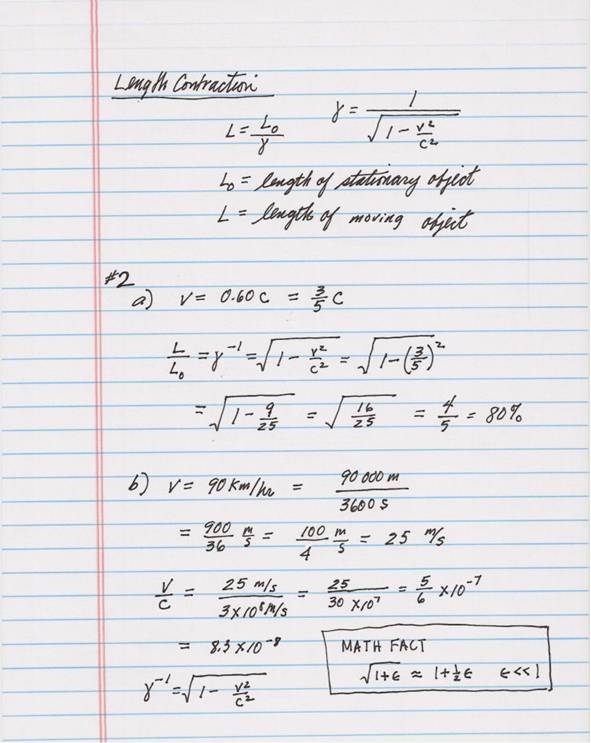 Length Contraction
L = L₀/γ    γ = 1/√(1 - v²/c²)
L₀ = length of stationary object
L = length of moving object
#2
a) v = 0.60 c = 3/5 c
L/L₀ = γ⁻¹ = √(1 - v²/c²) = √(1 - (3/5)²)
= √(1 - 9/25) = √(16/25) = 4/5 = 80%
b) v = 90 km/hr = 90 000 m / 3600 s
= 900/36 m/s = 100/4 m/s = 25 m/s
v/c = 25 m/s / 3×10⁸ m/s = 25 / 30 ×10⁷ = 5/6 ×10⁻⁷
= 8.3 ×10⁻⁸
γ⁻¹ = √(1 - v²/c²)
MATH FACT
√(1+ϵ) ≈ 1+½ϵ    ϵ<<1